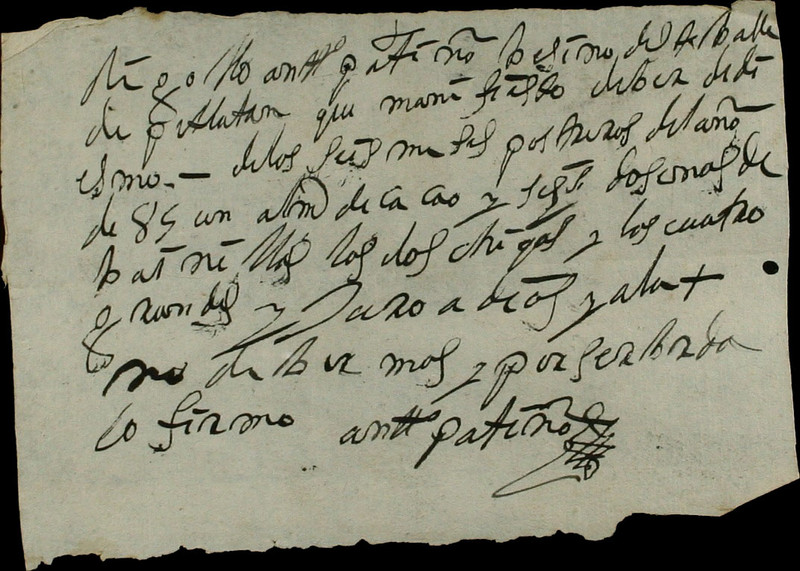 Digo Yo antto patiño besino, del te balle
de petatan que manifiesto deber de di
esmo - de los seis meses postreros del año
de 85 un almd de cacao y seys dosenas de
bainillas las dos chicas y las cuatro
grandes y Juro a dios y a la +
no deber mas y por ser berda
lo firmo antto patiño